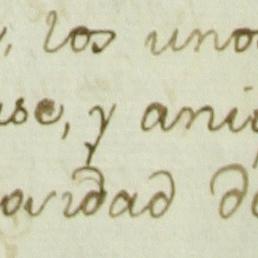 , los unos
use, y ani
oridad de